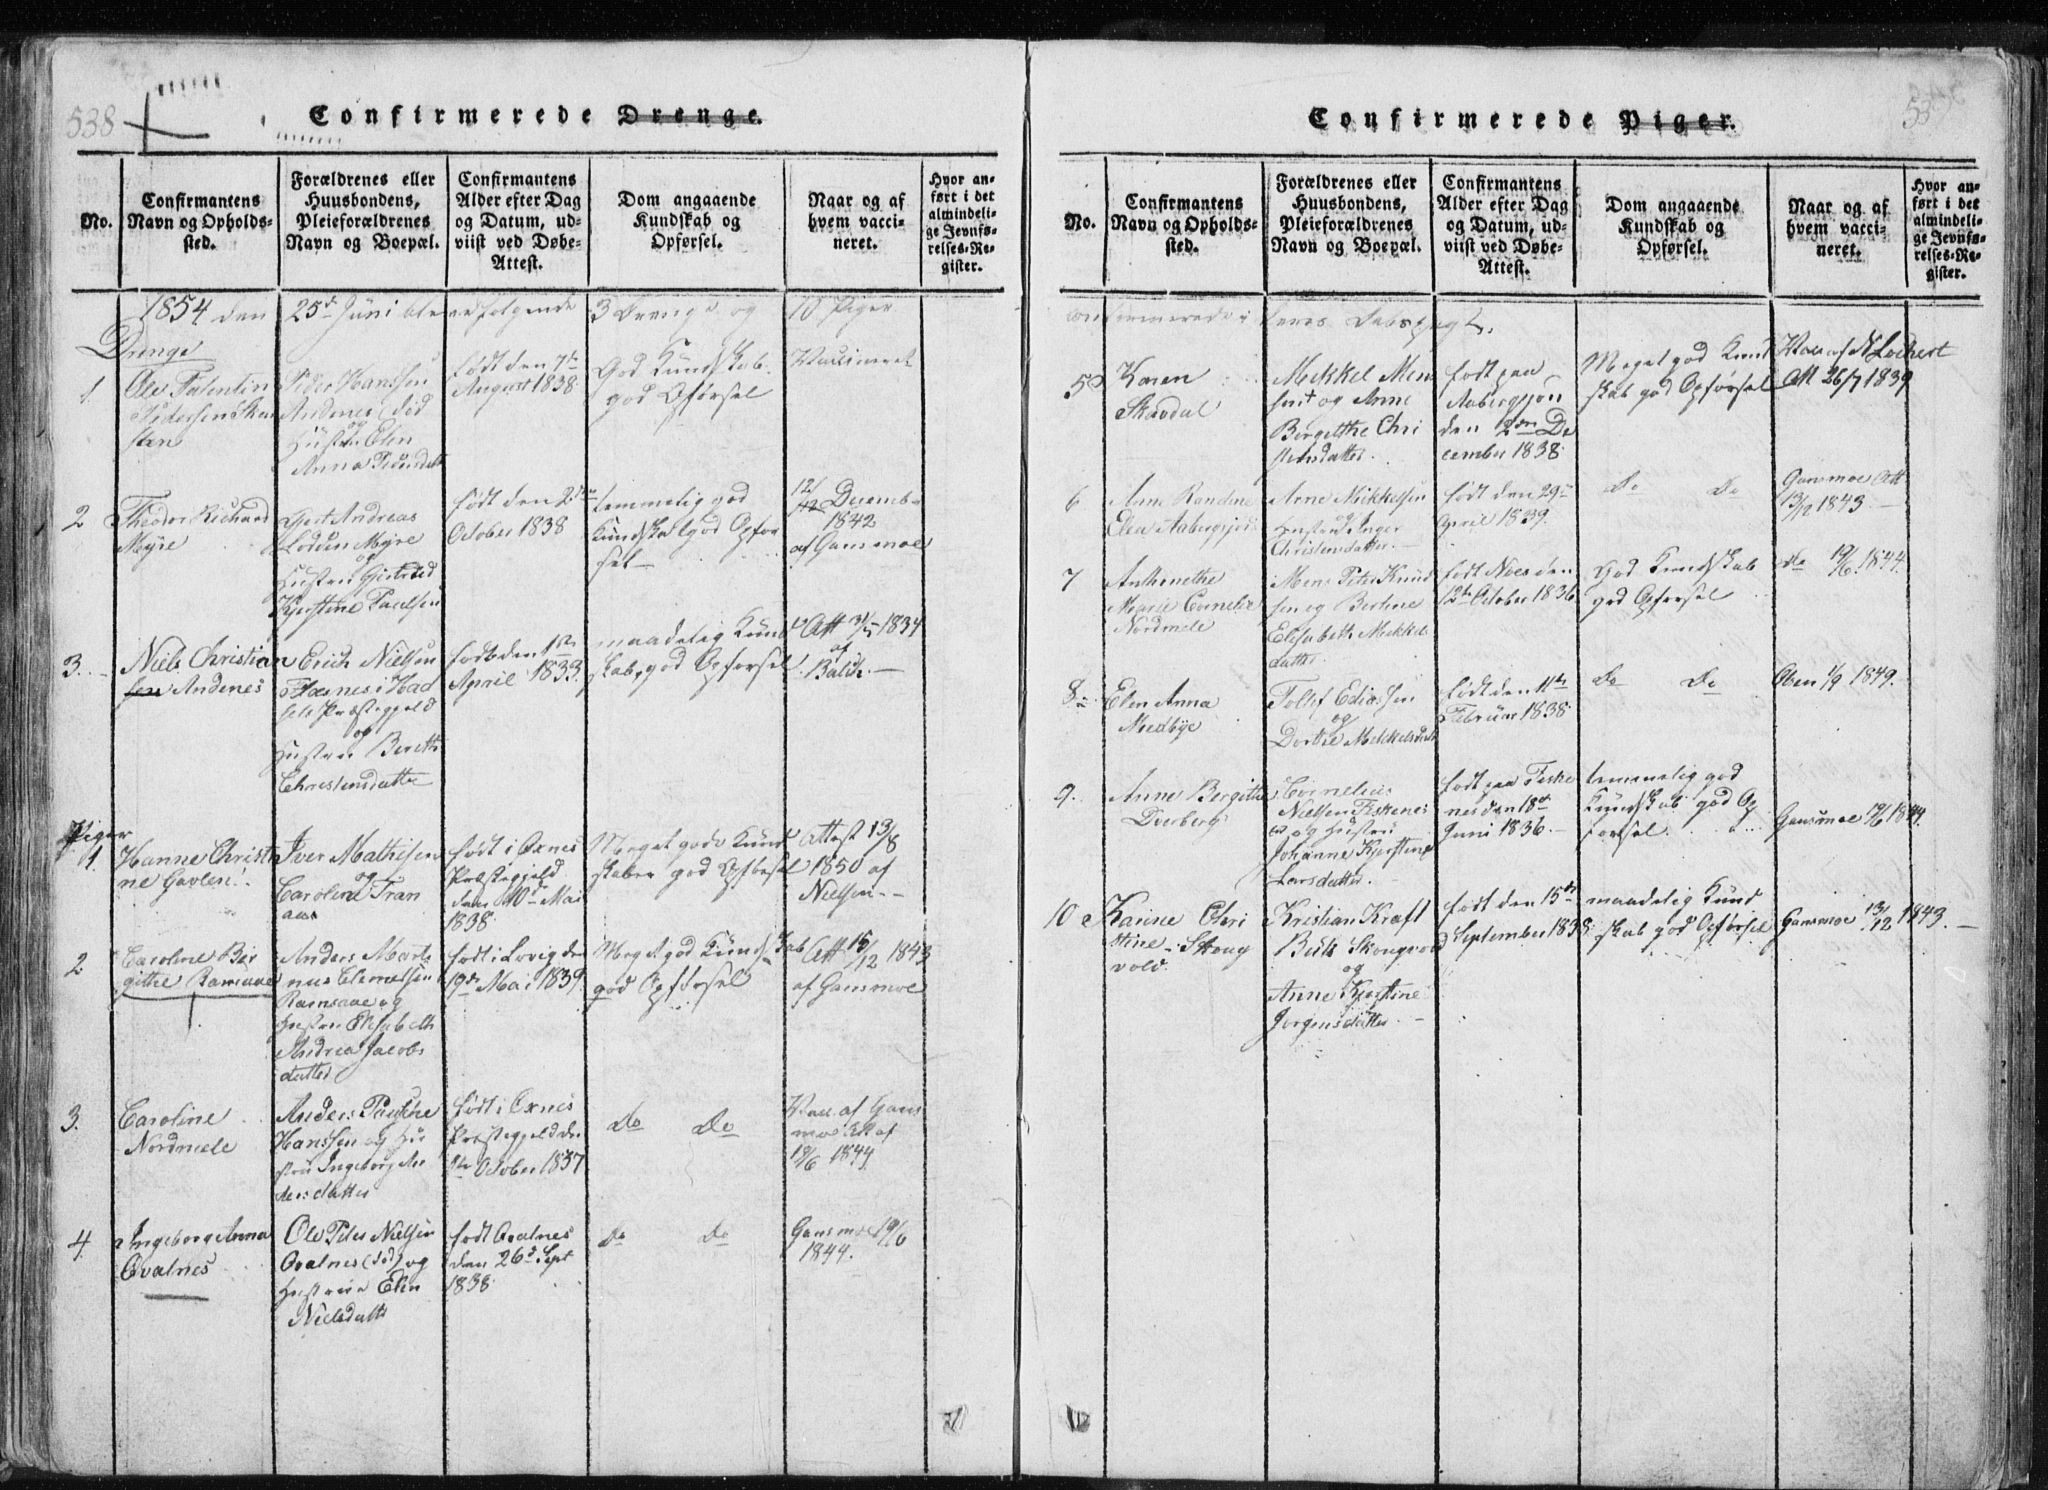 538
Confirmerede Drenge.
No.
Confirmantens
Navn og Opholds-
sted.
Forældrenes eller
Huusbondens,
Pleieforældrenes
Navn og Boepæl.
Confirmantens
Alder efter Dag
og Datum, ud-
viist ved Døbe-
Attest.
Dom angaaende
Kundskab og
Opførsel.
Naar og af
hvem vacci-
neret.
Hvor an-
ført i det
almindeli-
ge Jevnfø-
relses-Re-
gister.
1854 den 25de Juni bleve følgende 3 Drenge og 10 Piger
Drenge
1.
Ole
Pedersen
Peder Hanssen
Andenes (død
og
Hustru Elen
Anna
født den 7de
August 1838
God Kundskab
god Opførsel
Vaccineret
2
Theodor Richard
Myre
Gjert Andreas
Myre
og
Hustru
Kjerstine Paulsen
født den 2den
October 1838
temmelig god
Kundskab god Opfør
sel
12/12 Decemb
1842
af Gansmoe
3.
Niels Christian
sen Andenes
Erich Nielsen
i Had
sels Præstegjeld
og
Hustru Bereth
Christensdatter
født den 1ste
April 1833
maadelig Kund
skab, god Opførsel
Att 31/5 1834
af
Balich
Piger
1.
Hanne Christi
ne Gavlen
Iver Mathisen
og
Caroline Fran
født i Øxnes
Præstegjeld
den 10de Mai
1838
Meget gode Kund
skaber god Opførsel
Attest 13/8
1850 af
Nielsen
2
Caroline Ber
githe Ramsaae
Anders Mart
nus Clemetsen
Ramsaae og
Hustru Elisabeth
Andrea Jacobs
datter
født i Lovig den
19de Mai 1839
Meget god Kundskab
god Opførsel
Att 15/12 1843
af Gansmoe
3.
Caroline
Nordmele
Anders
Hanssen og Hu
stru Ingeborg An
dersdatter
født i Øxnes
Præstegjeld den
October 1837
Do Do
Vacc af Gans
moe Att af
19/6 1844
4.
Ingeborg Anna
Qvalnes
Ole Peter Nielsen
Qvalnes (død) og
Hustrue Elen
Nielsdatter
født Qvalnes
den 26de Sept
1838
Do Do
Gansmoe 19/6
1844.
Confirmerede Piger.
No.
Confirmantens
Navn og Opholds-
sted.
Forældrenes eller
Huusbondens,
Pleieforældrenes
Navn og Boepæl.
Confirmantens
Alder efter Dag
og Datum, ud-
viist ved Døbe-
Attest.
Dom angaaende
Kundskab og
Opførsel.
Naar og af
hvem vacci-
neret.
Hvor an-
ført i det
almindeli-
ge Jevnfø-
relses-Re-
gister.
confirmerede i deres Daabspagt.
5
Karen
Skavdal
Mikkel Mon
sen og Anne
Bergitthe Chri
stensdatter
født paa
Aabergsjøn
den 2den De
cember 1838
Meget god Kund
skab god Opførsel
Vacc af N Lochert
Att 26/7 1839
6
Anne Randine
Elea Aabergsjord
Arne Mikkelsen
og
Hustru Inger
Christensdatter
født den 29de
April 1839
Do Do
Gansmoe Att
13/12 1843
7
Anthonethe
Marie Cornelie
Nordmele
Mons Peter Knud
sen og Berthine
Elisabeth Mikkels
datter
født Noes den
12te October 1836
God Kundskab
god Opførsel
do 19/6 1844.
8
Elen Anna
Medbye
Tollef Ediassen
og
Dorthe Mikkelsdatt
født den 11te
Februar 1838
Do Do
Oben 1/9 1849.
9.
Anne Bergitthe
Dverberg
Cornelius
Nielsen Fiskenes
og Hustru
Johanne Kjerstine
Larsdatter
født paa Fiske
nes den 18de
Juni 1836
temmelig god
Kundskab god Op
førsel
Gansmoe 19/6 1844.
10
Karine Chri
stine Skoug
vold
Kristian Kraft
Buk Skougvold
og
Anne Kjerstine
Jørgensdatter
født den 15de
September 1838
maadelig Kund
skab god Opførsel
Gansmoe 13/12 1843.